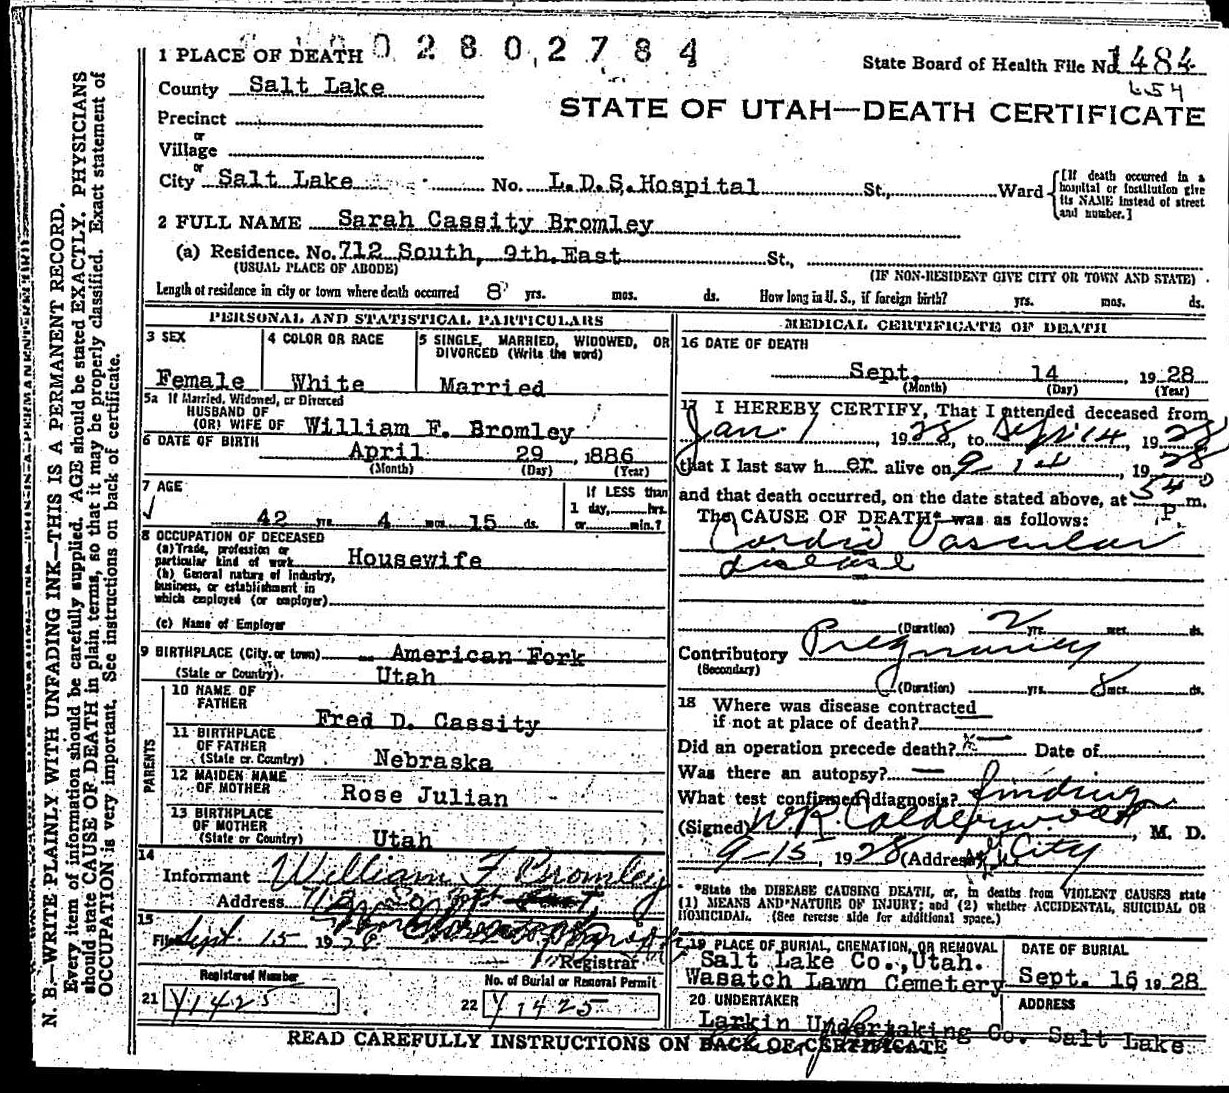 02802784
1 PLACE OF DEATH
State Board of Health File No. 1484
654
County Salt Lake
STATE OF UTAH—DEATH CERTIFICATE
Precinct
or
Village
or
City Salt Lake No. L.D.S.Hospital St., Ward
[If death occurred in a hospital or institution give its NAME instead of street and number.]
2 FULL NAME Sarah Cassity Bromley
(a) Residence. No. 712 South, 9th.East St.,
(USUAL PLACE OF ABODE) (IF NON-RESIDENT GIVE CITY OR TOWN AND STATE)
Length of residence in city or town where death occurred 8 yrs. mos. ds. How long in U. S., if foreign birth? yrs. mos. ds.
PERSONAL AND STATISTICAL PARTICULARS
3 SEX
Female
4 COLOR OR RACE
White
5 SINGLE, MARRIED, WIDOWED, OR DIVORCED (Write the word)
Married
5a If Married, Widowed, or Divorced
HUSBAND OF
(OR) WIFE OF William F. Bromley
6 DATE OF BIRTH
April 29, 1886
(Month) (Day) (Year)
7 AGE
42 yrs. 4 mos. 15 ds.
If LESS than
1 day, hrs.
or min.?
8 OCCUPATION OF DECEASED
(a) Trade, profession or
particular kind of work Housewife
(b) General nature of industry,
business, or establishment in
which employed (or employer)
(c) Name of Employer
9 BIRTHPLACE (City or town) American Fork
(State or Country) Utah
PARENTS
10 NAME OF
FATHER
Fred D. Cassity
11 BIRTHPLACE
OF FATHER
(State or Country) Nebraska
12 MAIDEN NAME
OF MOTHER
Rose Julian
13 BIRTHPLACE
OF MOTHER
(State or Country) Utah
14
Informant William F Bromley
Address
15
Filed Sept. 15 1928
Registrar
Registered Number
21 Y1425
No. of Burial or Removal Permit
22 Y1425
MEDICAL CERTIFICATE OF DEATH
16 DATE OF DEATH
Sept. 14, 1928
(Month) (Day) (Year)
17 I HEREBY CERTIFY, That I attended deceased from
Jan. 1, 1928, to Sept 14, 1928
that I last saw her alive on 9-14 1928
and that death occurred, on the date stated above, at 540 P. m.
The CAUSE OF DEATH* was as follows:
Cardio Vascular
disease
(Duration) 2 yrs. mos. ds.
Contributory Pregnancy
(Secondary)
(Duration) yrs. 8 mos. ds.
18 Where was disease contracted
if not at place of death?
Did an operation precede death? Date of
Was there an autopsy?
What test confirmed diagnosis? finding
(Signed) W R Calderwood, M. D.
9-15, 1928 (Address) City
*State the DISEASE CAUSING DEATH, or, in deaths from VIOLENT CAUSES state
(1) MEANS AND NATURE OF INJURY; and (2) whether ACCIDENTAL, SUICIDAL OR
HOMICIDAL. (See reverse side for additional space.)
19 PLACE OF BURIAL, CREMATION, OR REMOVAL
Salt Lake Co.,Utah.
Wasatch Lawn Cemetery
DATE OF BURIAL
Sept. 16 1928
20 UNDERTAKER
Larkin Undertaking Co. Salt Lake
ADDRESS
READ CAREFULLY INSTRUCTIONS ON BACK OF CERTIFICATE
N. B.—WRITE PLAINLY WITH UNFADING INK—THIS IS A PERMANENT RECORD.
Every item of information should be carefully supplied. AGE should be stated EXACTLY. PHYSICIANS
should state CAUSE OF DEATH in plain terms, so that it may be properly classified. Exact statement of
OCCUPATION is very important. See instructions on back of certificate.